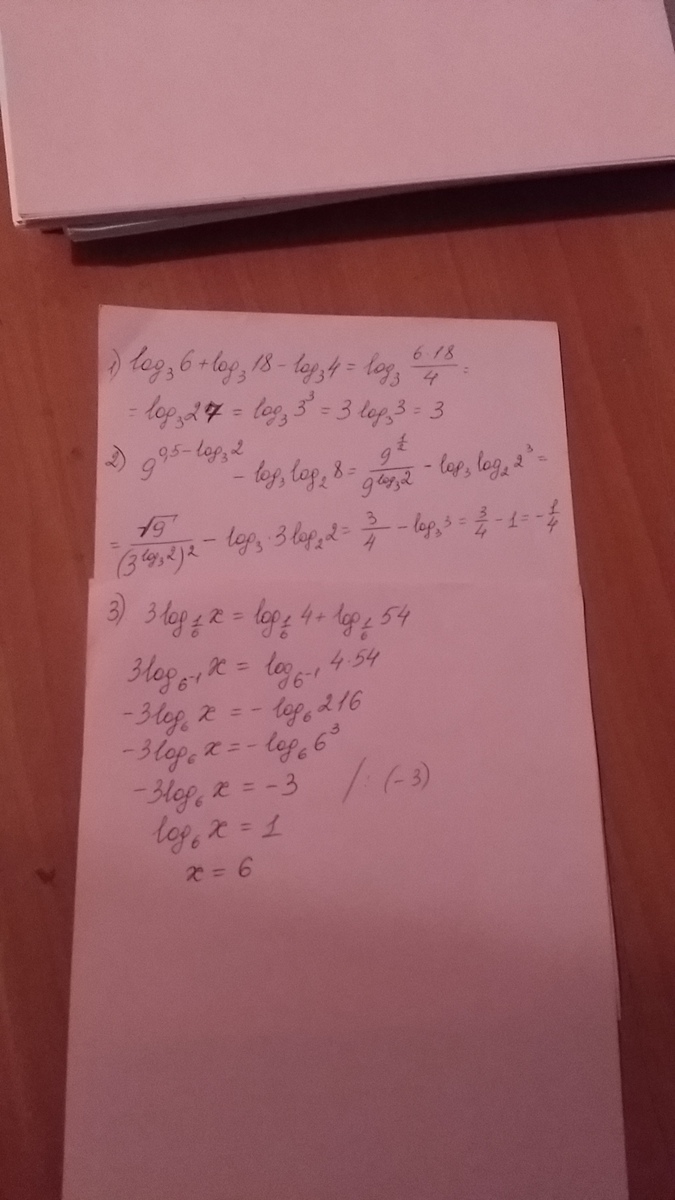 1) log₃6 + log₃18 - log₃4 = log₃ (6·18)/4 =
= log₃27 = log₃3³ = 3log₃3 = 3
2) 9^(0,5 - log₃2) - log₃log₂8 = 9^(1/2)/9^(log₃2) - log₃log₂2³ =
= √9/(3^(log₃2))² - log₃·3log₂2 = 3/4 - log₃3 = 3/4 - 1 = -1/4
3) 3log_(1/6) x = log_(1/6) 4 + log_(1/6) 54
3log_(6⁻¹) x = log_(6⁻¹) 4·54
-3log₆x = -log₆216
-3log₆x = -log₆6³
-3log₆x = -3 /: (-3)
log₆x = 1
x = 6